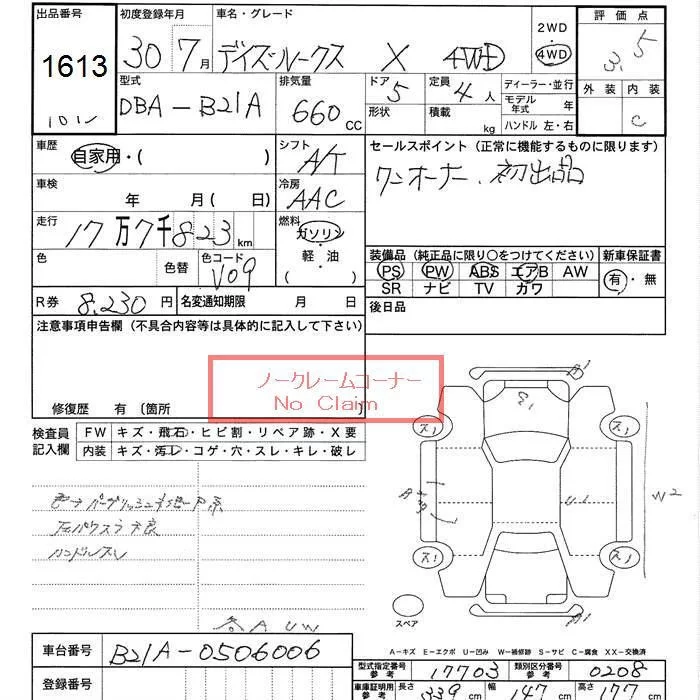 出品番号 初度登録年月 車名・グレード 2WD 評価点
1613 30 7月 デイズ・ルークス X 4WD ・ 4WD 3.5
型式 排気量 ドア 定員 ディーラー・並行 外装 内装
DBA-B21A 660 CC 5 4人 モデル年式 年 C
形状 積載 kg ハンドル 左・右
車歴 自家用・( ) シフト A/T セールスポイント(正常に機能するものに限ります)
車検 年 月( 日) 冷房 AAC ワンオーナー、初出品
走行 17万7千823km 燃料 ガソリン
色 色替 色コード V09 軽・油 ( )
装備品(純正品に限り〇をつけてください) 新車保証書
PS PW ABS エアB AW 有・無
SR ナビ TV カワ
R券 8,230円 名変通知期限 月 日 後日品
注意事項申告欄(不具合内容等は具体的に記入して下さい)
ノークレームコーナー
No Claim
修復歴 有〔箇所 〕
検査員記入欄 FW キズ・飛石・ヒビ割・リペア跡・X要
内装 キズ・汚コ・コゲ・穴・スレ・キレ・破レ
ハンドルスレ
A UW
A1
ス1 ス1
W2
ス1 ス1
A1
スペア
A-キズ E-エクボ U-凹み W-補修跡 S-サビ C-腐食 XX-交換済
車台番号 B21A-0506006
型式指定番号 参考 17703 類別区分番号 参考 0208
登録番号 車庫証明用 参考 長さ 339 cm 幅 147 cm 高さ 177 cm